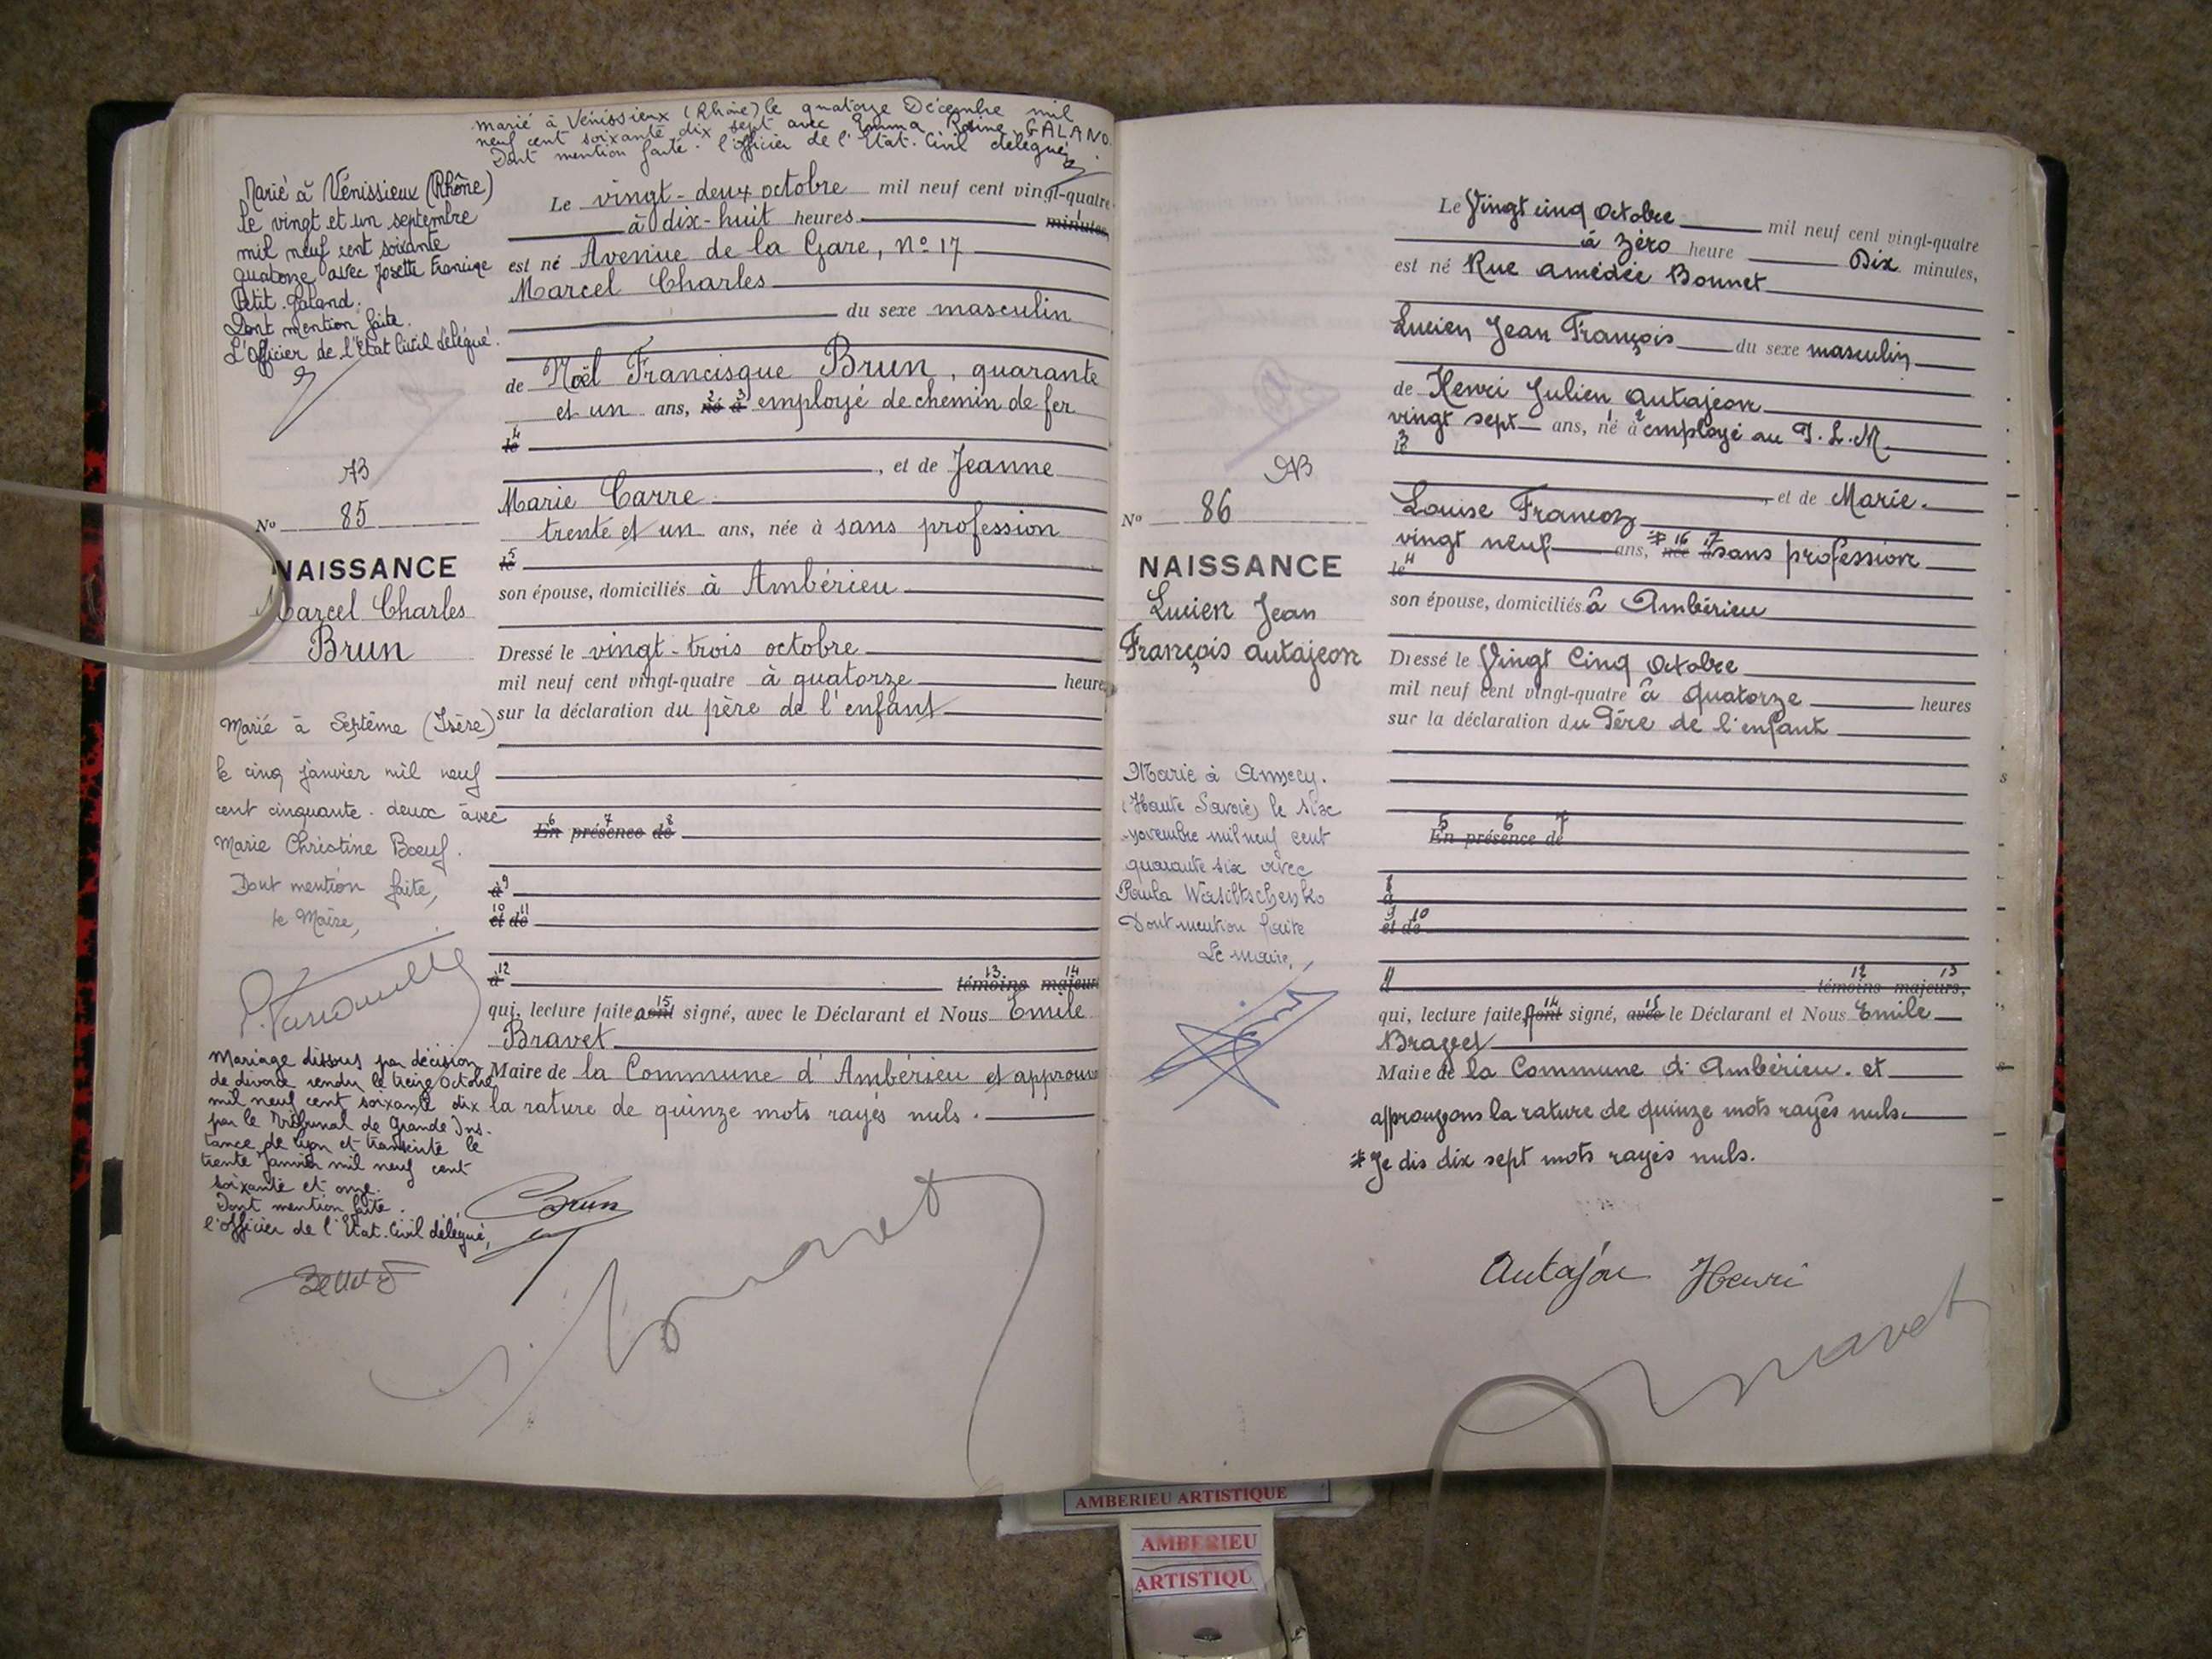 marié à Vénissieux (Rhône) le quatorze Décembre mil
neuf cent soixante dix sept avec Emma Rosine GALANO.
Dont mention faite. l'officier de l'Etat.Civil délégué,
Marié à Vénissieux (Rhône)
le vingt et un septembre
mil neuf cent soixante
quatorze avec Josette Francine
Petit-Galand.
Dont mention faite.
L'Officier de l'Etat Civil délégué.
AB
N° 85
NAISSANCE
Marcel Charles
Brun
Marié à Septême (Isère)
le cinq janvier mil neuf
cent cinquante-deux avec
Marie Christine Boeuf.
Dont mention faite,
le Maire,
Mariage dissous par décision
de divorce rendu le treize Octobre
mil neuf cent soixante dix
par le Tribunal de Grande Ins-
tance de Lyon et transcrite le
trente janvier mil neuf cent
soixante et onze.
Dont mention faite.
l'officier de l'Etat.Civil délégué,
Le vingt-deux octobre mil neuf cent vingt-quatre
à dix-huit heures 1 minutes,
est né Avenue de la Gare, N° 17
Marcel Charles
du sexe masculin
de Noël Francisque Brun, quarante
et un ans, né 2 à 3 employé de chemin de fer
le 4
, et de Jeanne
Marie Carre
trente et un ans, née à sans profession
le 5
son épouse, domiciliés à Ambérieu
Dressé le vingt-trois octobre
mil neuf cent vingt-quatre à quatorze heures
sur la déclaration du père de l'enfant
En 6 présence 7 de 8
à 9
et 10 de 11
à 12 témoins 13 majeurs 14
qui, lecture faite a ont 15 signé, avec le Déclarant et Nous Emile
Bravet
Maire de la Commune d'Ambérieu et approuvé
la rature de quinze mots rayés nuls.
Brun
Bravet
AB
N° 86
NAISSANCE
Lucien Jean
François Autajeon
Marié à Annecy.
(Haute Savoie) le six
novembre mil neuf cent
quarante six avec
Paula Wasiltschenko
Dont mention faite
Le maire,
Le Vingt cinq Octobre mil neuf cent vingt-quatre
à zéro heure Dix minutes,
est né Rue Amédée Bonnet
Lucien Jean François du sexe masculin
de Henri Julien Autajeon
vingt sept ans, né 1 à 2 employé au P.L.M.
le 3
, et de Marie.
Louise Francoz
vingt neuf ans, * née 16 à 17 sans profession
le 4
son épouse, domiciliés à Ambérieu
Dressé le Vingt Cinq Octobre
mil neuf cent vingt-quatre à Quatorze heures
sur la déclaration du Père de l'enfant
En 5 présence 6 de 7
à 8
et 9 de 10
à 11 témoins 12 majeurs, 13
qui, lecture faite, A ont 14 signé, avec 15 le Déclarant et Nous Emile
Bravet
Maire de la Commune d'Ambérieu. et
approuvons la rature de quinze mots rayés nuls.
* Je dis dix sept mots rayés nuls.
Autajon Henri
Bravet
AMBERIEU ARTISTIQUE
AMBERIEU
ARTISTIQU